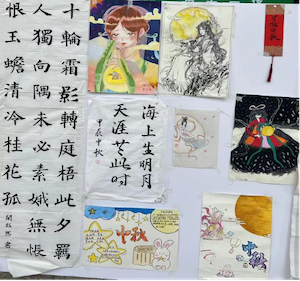 十輪霜影轉庭梧此夕羈
人獨向隅未必素娥無悵
恨玉蟾清冷桂花孤
海上生明月
天涯共此时
甲辰中秋
中秋
中秋